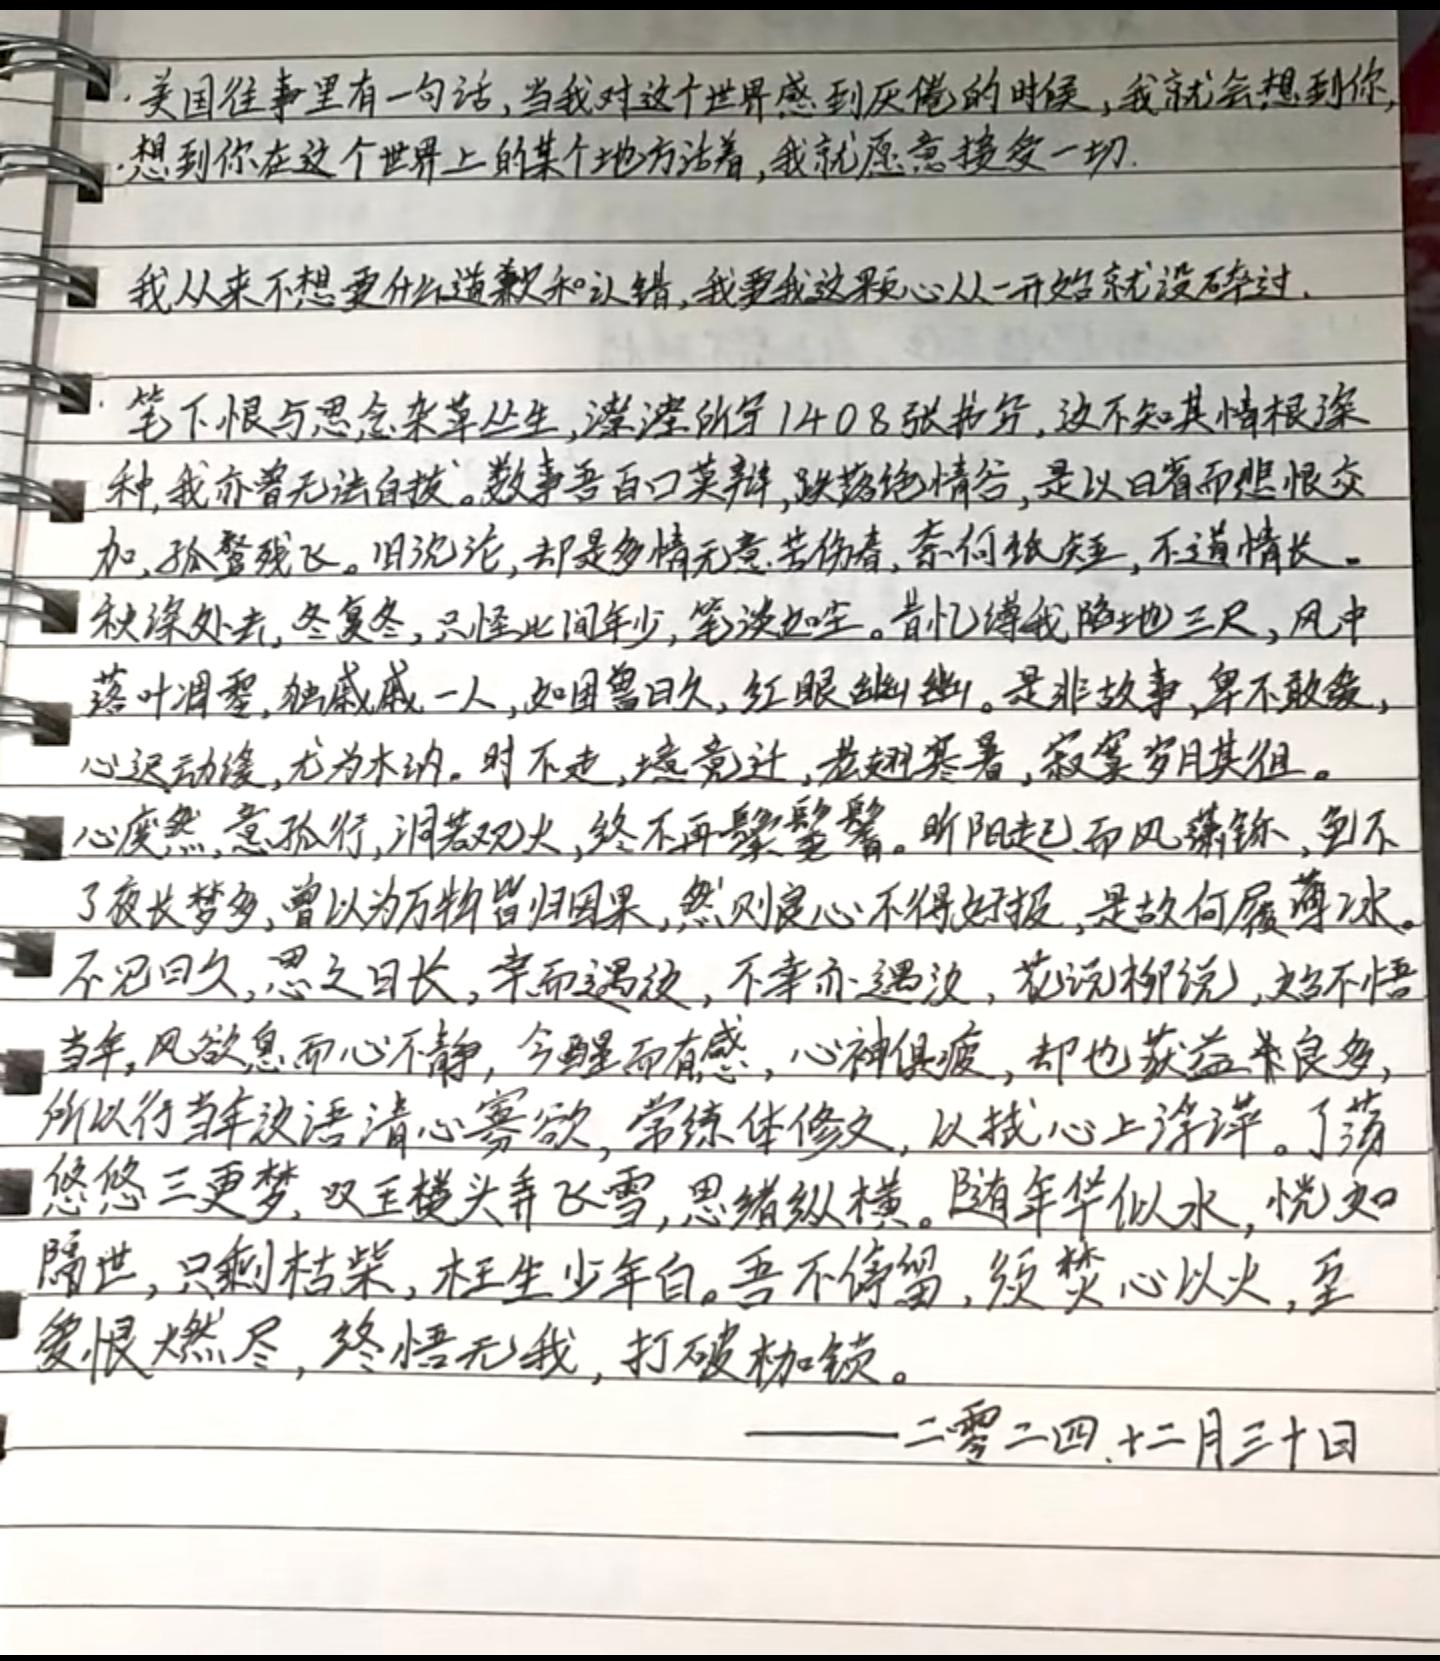 美国往事里有一句话,当我对这个世界感到厌倦的时候,我就会想到你,
想到你在这个世界上的某个地方活着,我就愿意接受一切.
我从来不想要什么道歉和认错,我要我这颗心从一开始就没碎过.
笔下恨与思念杂草丛生,潦潦所写1408张书写,这不知其情根深
种,我亦曾无法自拔。数事吾百口莫辩,跌落绝情谷,是以日省而悲恨交
加,孤鹜残飞。旧沈沦,却是多情无意苦伤春,奈何纸短,不道情长。
秋深处去,冬复冬,只怪此间年少,笔淡如尘。昔忆缚我陷地三尺,风中
落叶凋零,独戚戚一人,如困兽日久,红眼幽幽。是非故事,卑不敢爱,
心迟动缓,尤为木讷。时不走,境竟迁,老翅寒暑,寂寞岁月其徂。
心废然,意孤行,洞若观火,终不再。昕阳起而风潇铄,免不
了夜长梦多,曾以为万物皆归因果,然则良心不得好报,是故何履薄冰。
不见日久,思之日长,幸而遇汝,不幸亦遇汝,花说柳说,始不悟
当年,风欲息而心不静,今醒而有感,心神俱疲,却也获益良多,
所以行当年汝语清心寡欲,常练体修文,以拭心上浮萍。了荡
悠悠三更梦,双玉横头弄飞雪,思绪纵横。随年华似水,恍如
隔世,只剩枯柴,枉生少年白。吾不停留,须焚心以火,至
爱恨燃尽,终悟无我,打破枷锁。
——二零二四.十二月三十日